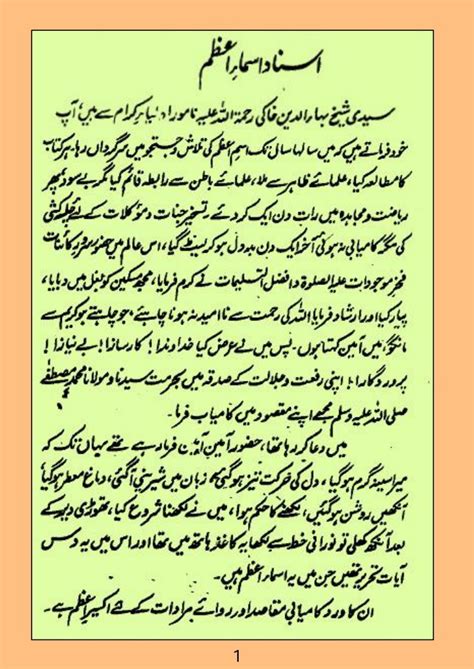 اسناد اسماءِ اعظم
سیدی شیخ بہاءالدین خاکی رحمۃ اللہ علیہ نامور اولیاء کرام سے ہیں، آپ
خود فرماتے ہیں کہ میں سالہا سال تک اسمِ اعظم کی تلاش و جستجو میں سرگرداں رہا، ہر کتاب
کا مطالعہ کیا، علمائے ظاہر سے ملا، علمائے باطن سے رابطہ قائم کیا مگر بے سود پھر
ریاضت و مجاہدہ میں رات دن ایک کر دئے، تسخیر جنات و مؤکلات کے لئے چلہ کشی
کی مگر کامیابی نہ ہوئی آخر ایک دن بد دل ہو کر لیٹ گیا، اس عالم میں حضور سرور کائنات
فخر موجودات علیہ الصلوۃ و افضل التسلیمات نے کرم فرمایا، مجھ مسکین کو بغل میں دبایا،
پیار کیا اور ارشاد فرمایا اللہ کی رحمت سے ناامید نہ ہونا چاہئے، جو چاہتے ہو کریم سے
مانگو، میں آمین کہتا ہوں۔ پس میں نے عرض کیا خداوندا! کارسازا! بے نیازا!
پروردگارا! اپنی رفعت و جلالت کے صدقہ میں بحرمت سیدنا و مولانا محمد مصطفٰے
صلی اللہ علیہ وسلم مجھے اپنے مقصود میں کامیاب فرما۔
میں دعا کر رہا تھا، حضور آمین آمین فرما رہے تھے یہاں تک کہ
میرا سینہ گرم ہو گیا، دل کی حرکت تیز ہو گئی، زبان میں شیرینی آگئی، دماغ معطر ہو گیا،
آنکھیں روشن ہو گئیں، لکھنے کا حکم ہوا، میں نے لکھنا شروع کیا، تھوڑی دیر کے
بعد آنکھ کھلی تو نورانی خط سے لکھا یہ کاغذ ہاتھ میں تھا اور اس میں یہ دس
آیات تحریر تھیں جن میں یہ اسماء اعظم ہیں۔
ان کا ورد کامیابی مقاصد اور روائے مرادات کے لئے اکسیرِ اعظم ہے۔
1